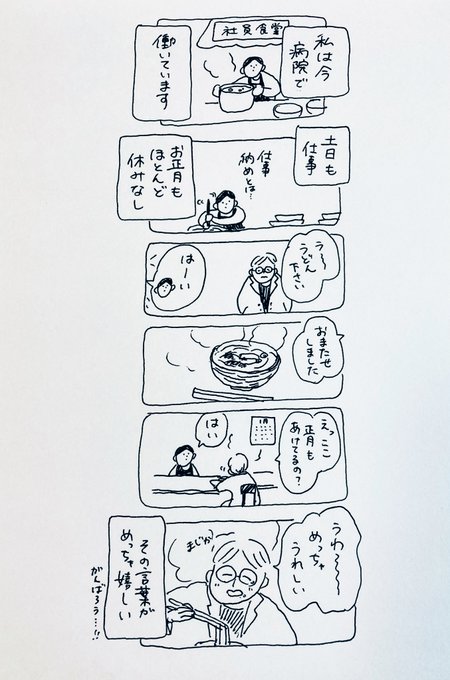 社員食堂
私は今
病院で
働いています
土日も
仕事
仕事
納めとは…
お正月も
ほとんど
休みなし
う〜〜
うどん
下さい
はーい
おまたせ
しました
えっここ
正月も
あけてるの?
1月
はい
うわ〜〜〜
めっちゃ
うれしい
まじか
その言葉が
めっちゃ嬉しい
がんばろう…!!